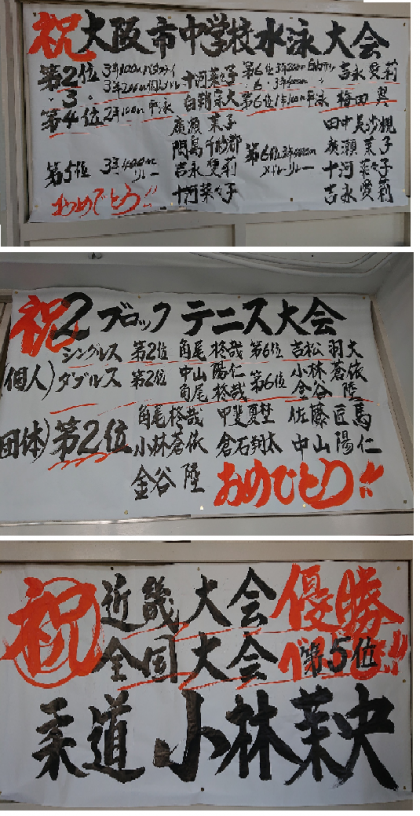 祝 大阪市中学校水泳大会
第2位 3年100mバタフライ 十河菜々子 第6位
3年200m個人メドレー 吉永愛莉
第4位 2年100m平泳 第6位 1年100m平泳 梅田
廣瀬茉子 田中美沙槻
廣瀬茉子
第5位 3年400mリレー 吉永愛莉 第6位 400mメドレーリレー 十河菜々子
おめでとう!! 十河菜々子 吉永愛莉
祝 2ブロック テニス大会
シングルス 第2位 角尾柊哉 第6位 吉松羽大
(個人) ダブルス 第2位 中山陽仁 第6位 小林蒼依
角尾柊哉 金谷陸
団体) 第2位 角尾柊哉 甲斐夏埜 佐藤匠馬
小林蒼依 倉石翔太 中山陽仁
金谷陸 おめでとう!!
祝 近畿大会 優勝
全国大会 第5位
柔道 小林茉央